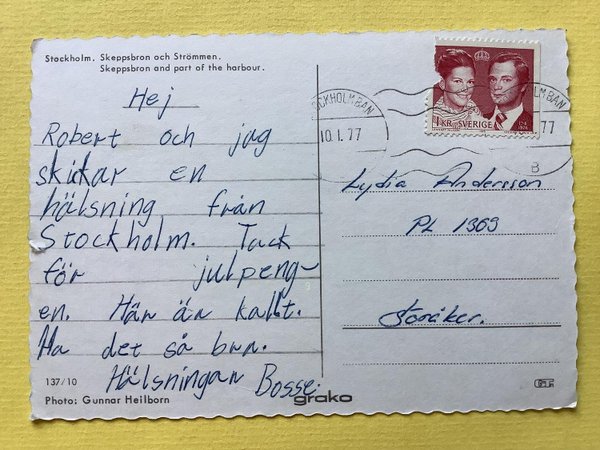 Stockholm. Skeppsbron och Strömmen.
Skeppsbron and part of the harbour.
Hej
Robert och jag
skickar en
hälsning från
Stockholm. Tack
för julpeng-
en. Här är kallt.
Ha det så bra.
Hälsningar Bosse.
137/10
Photo: Gunnar Heilborn
grako
1 KR SVERIGE
STOCKHOLM BAN
10.1.77
HOLM BAN
77
B
Lydia Andersson
PL 1369
Storåker.